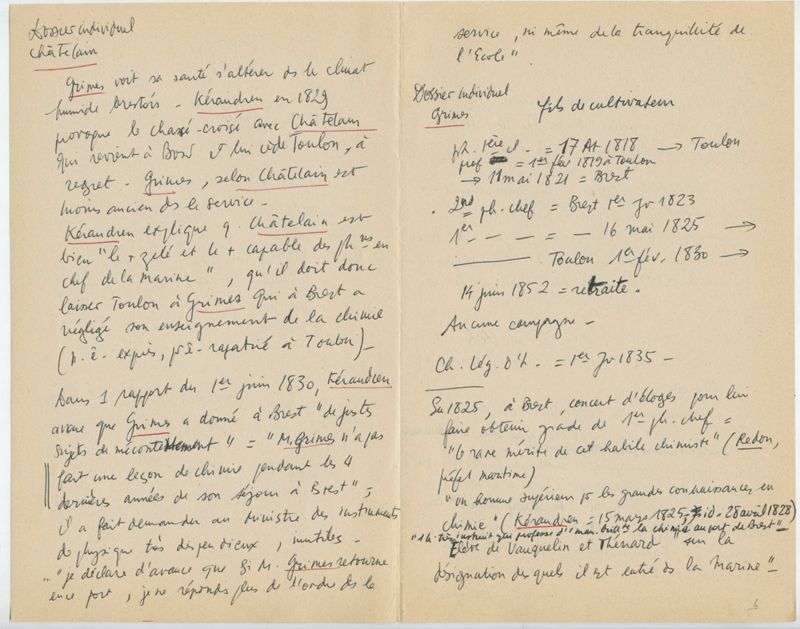 Dossier individuel
Châtelain
Grimes voit sa santé s'altérer ds le climat
humide brestois - Kérandren en 1829
provoque le chassé-croisé avec Châtelain
qui revient à Brest et lui cède Toulon, à
regret - Grimes, selon Châtelain est
moins ancien ds le service -
Kérandren explique q. Châtelain est
bien "le + zélé et le + capable des ph ens en
chef de la Marine", qu'il doit donc
laisser Toulon à Grimes qui à Brest a
négligé son enseignement de la chimie
(p.ê. exprès, p ê - rapatrié à Toulon) -
Dans 1 rapport du 1er juin 1830, Kérandren
avoue que Grimes a donné à Brest "de justes
sujets de mécontentement" = "M. Grimes n'a pas
fait une leçon de chimie pendant les 4
dernières années de son séjour à Brest" -
il a fait demander au Ministre des instruments
de physique très dispendieux, inutiles -
"je déclare d'avance que si M. Grimes retourne
en ce port, je ne réponds plus de l'ordre ds le
service, ni même de la tranquillité de
l'Ecole"
Dossier individuel
Grimes
fils de cultivateur
ph. 1ère cl. = 17 At 1818 → Toulon
prof = 1er fév 1819 à Toulon
→ 11 mai 1821 = Brest
. 2nd ph. chef = Brest 1er Jr 1823
1er - - - = - 16 mai 1825 →
Toulon 1er fév. 1830 →
14 juin 1852 = retraite.
Aucune campagne -
Ch. Lég. d'h. = 1er Jr 1835 -
En 1825, à Brest, concert d'éloges pour lui
faire obtenir grade de 1er ph. chef =
"le rare mérite de cet habile chimiste" (Redon,
préfet maritime)
"un homme supérieur ps les grandes connaissances en
chimie" (Kérandren = 15 mars 1825 - id - 28 avril 1828)
très instruit professe la chimie au port de Brest" -
Elève de Vauquelin et Thénard "sur la
désignation desquels il est entré ds la Marine" -
6